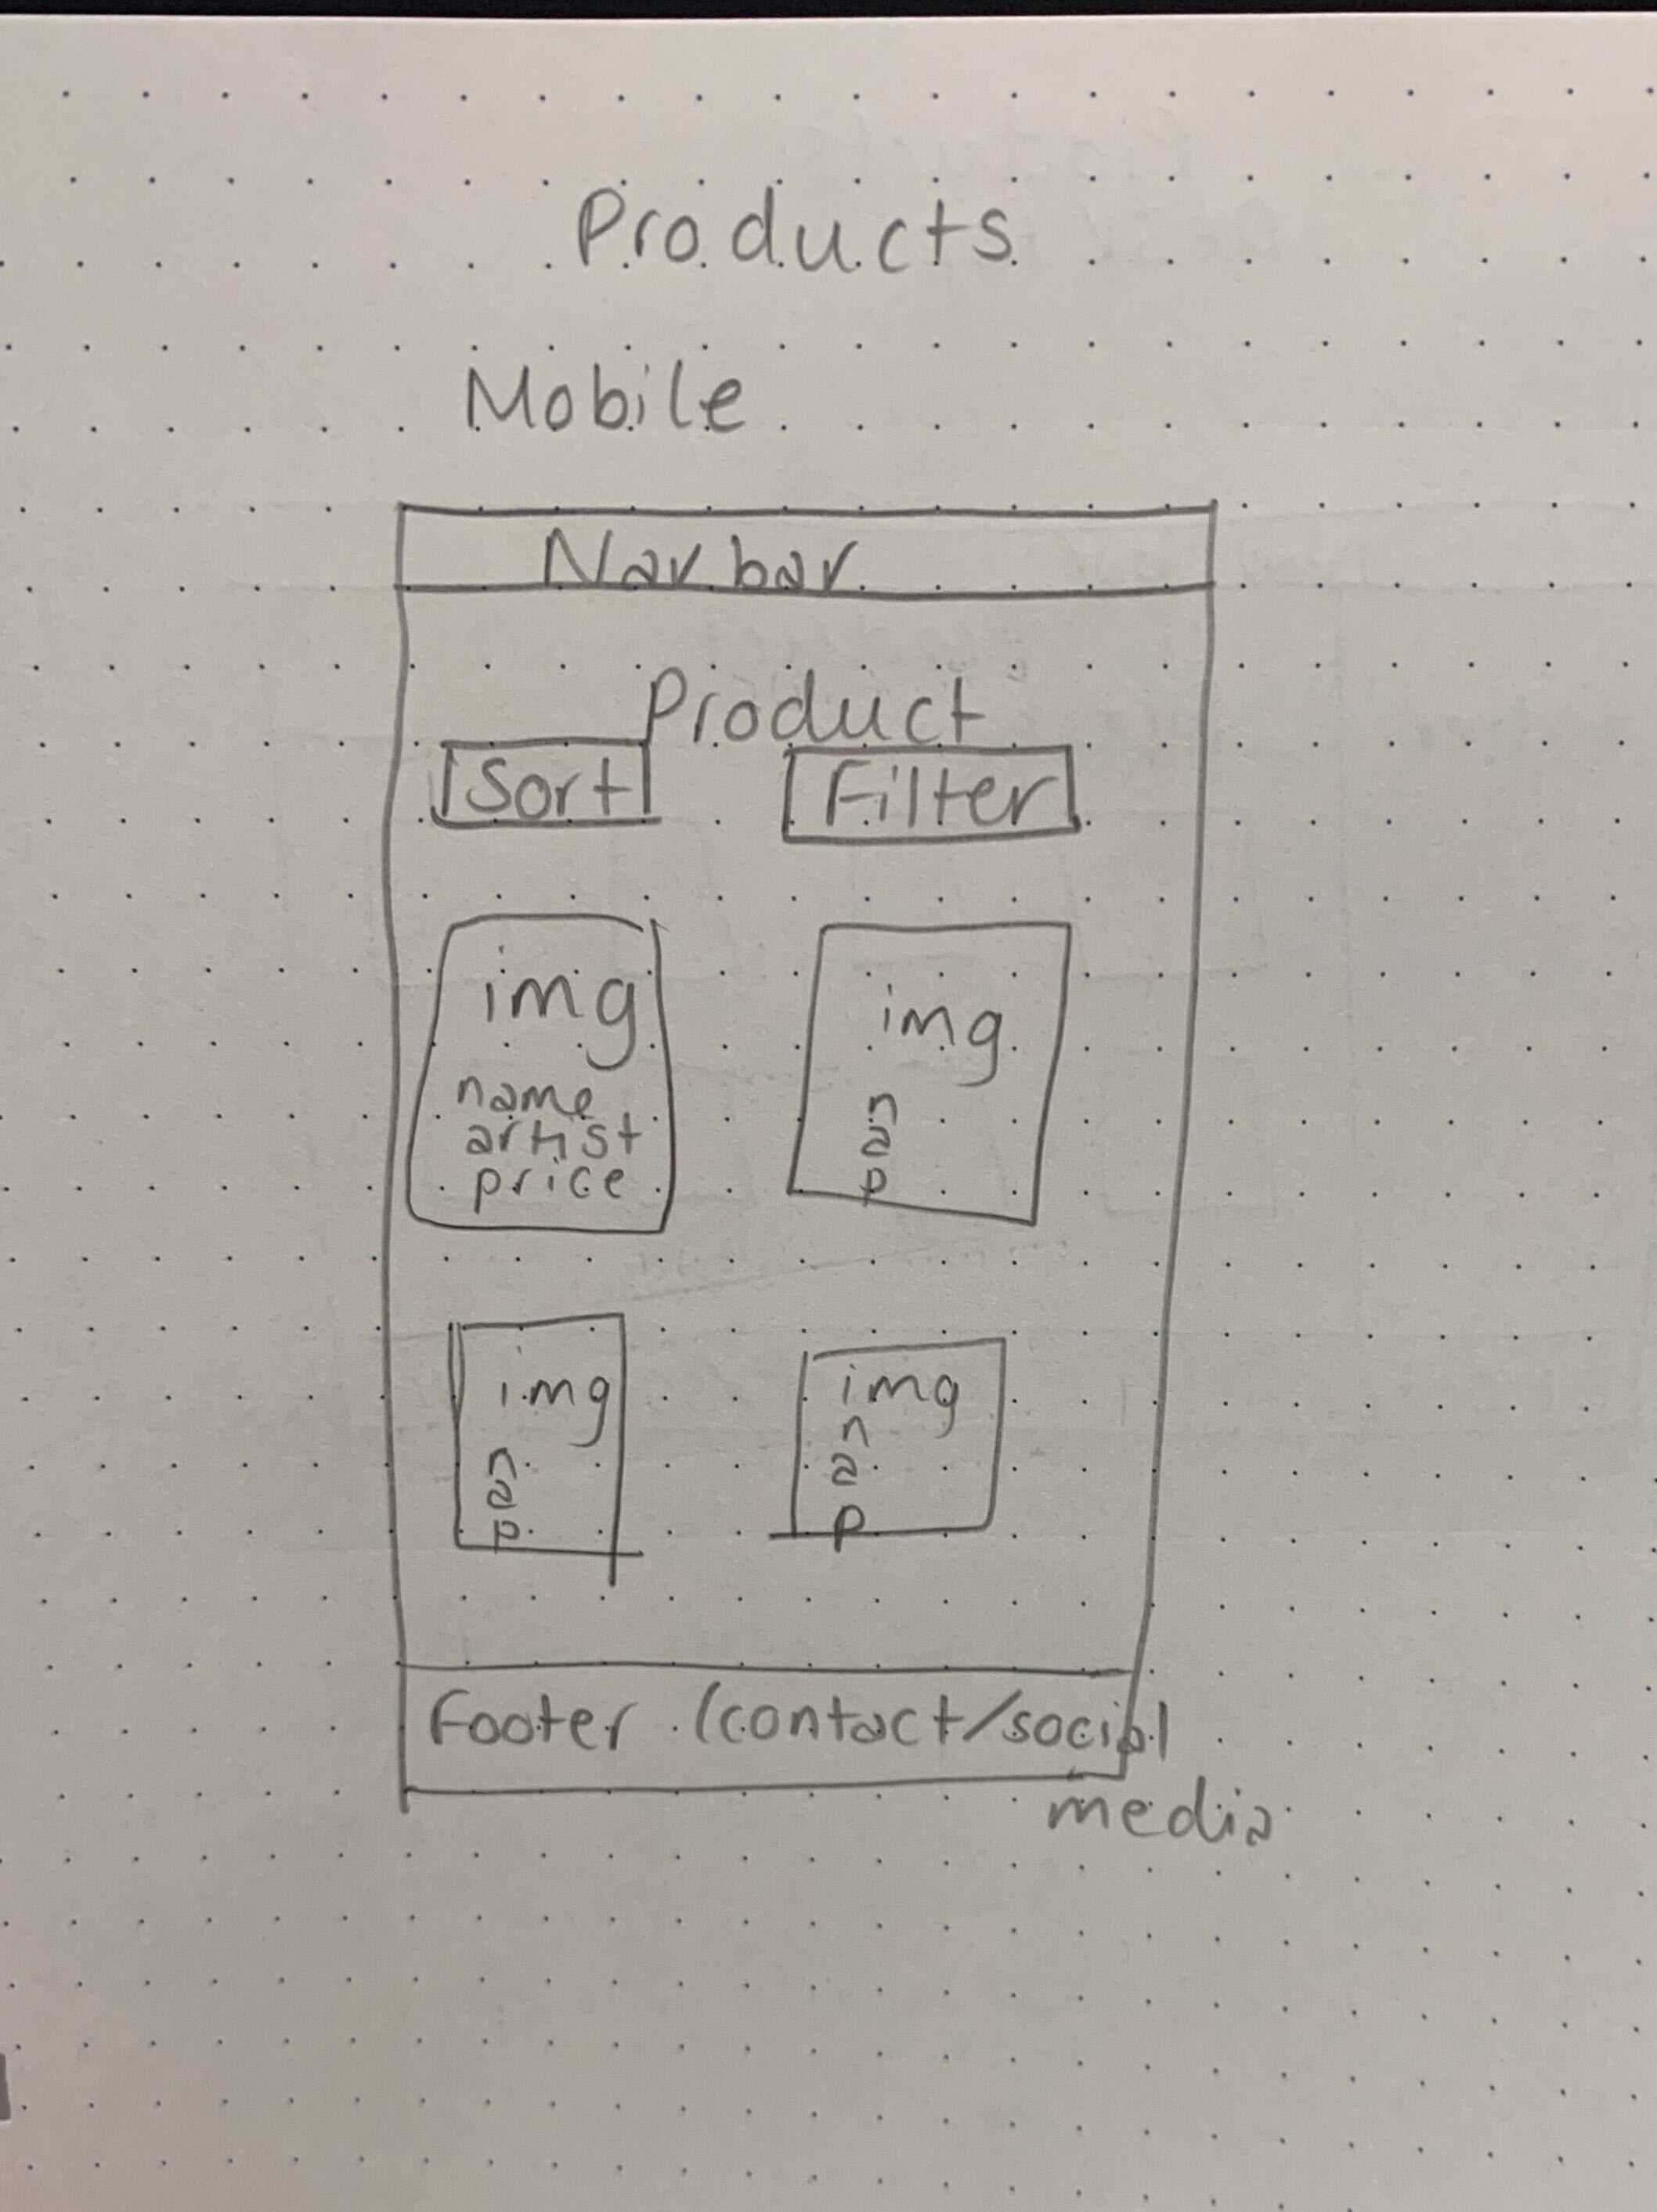 Products
Mobile
Navbar
Product
Sort Filter
img img
name n
artist a
price p
img img
n n
a a
p p
Footer (contact/social
media